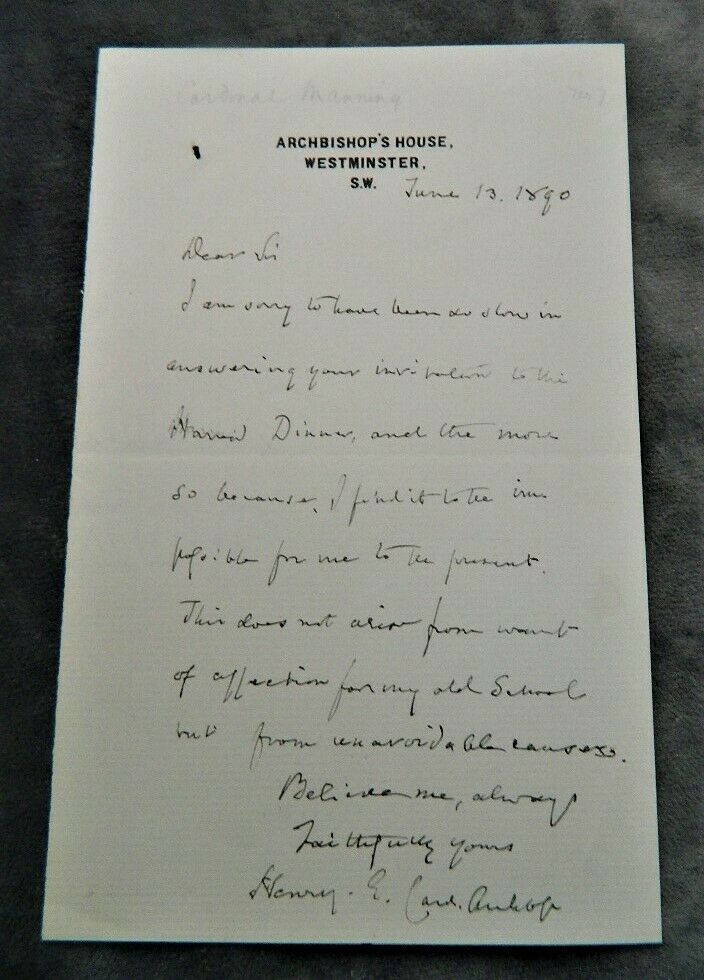 Cardinal Manning
ARCHBISHOP'S HOUSE,
WESTMINSTER,
S.W.
June 13. 1890
Dear Sir
I am sorry to have been so slow in
answering your invitation to the
Harrow Dinner, and the more
so because, I find it to be im
possible for me to be present.
This does not arise from want
of affection for my old School
but from unavoidable causes.
Believe me, always
Faithfully yours
Henry. E. Card. Archbp